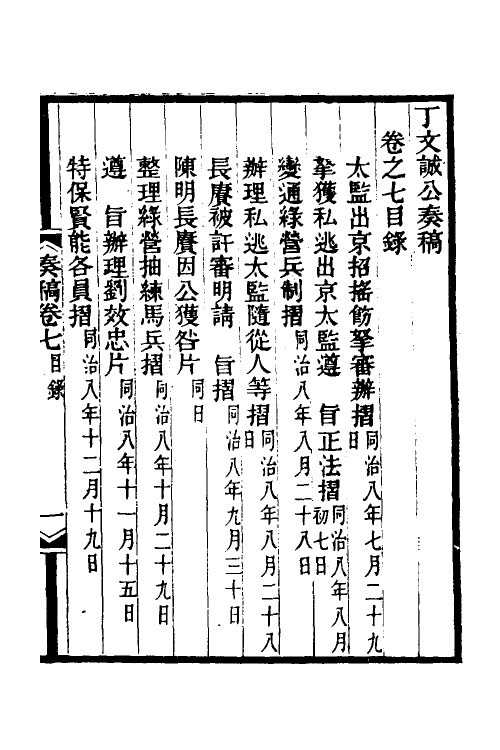 丁文誠公奏稿
卷之七目錄
太監出京招搖飭拏審辦摺同治八年七月二十九日
拏獲私逃出京太監遵　旨正法摺同治八年八月初七日
變通綠營兵制摺同治八年八月二十八日
辦理私逃太監隨從人等摺同治八年八月二十八日
長賡被訐審明請　旨摺同治八年九月三十日
陳明長賡因公獲咎片同日
整理綠營抽練馬兵摺同治八年十月二十九日
遵　旨辦理劉效忠片同治八年十一月十五日
特保賢能各員摺同治八年十二月十九日
奏稿卷七目錄　一